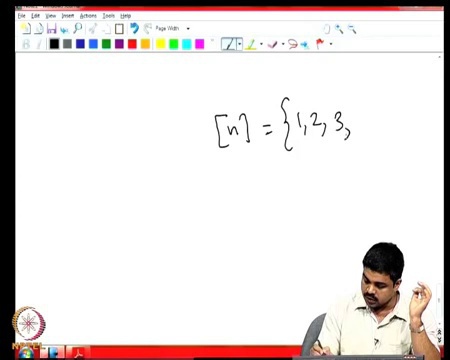 File Edit View Insert Actions Tools Help
Page Width
[n] = {1, 2, 3,